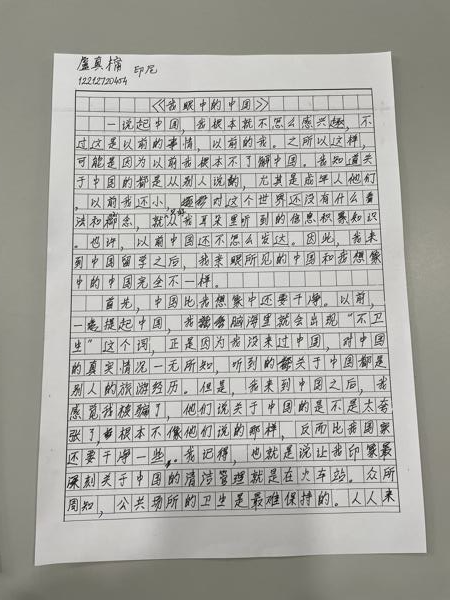 卢真楠 印尼
12212720454
《我眼中的中国》
一说起中国，我根本就不怎么感兴趣，不
过这是以前的事情，以前的我。之所以这样，
可能是因为以前我根本不了解中国。我知道关
于中国的都是从别人说的，尤其是成年人他们
，以前我还小，对这个世界还没有什么看
法和观念，就只能从我耳朵里听到的信息积累知识
。也许，以前中国还不怎么发达。因此，我来
到中国留学之后，我亲眼所见的中国和我想象
中的中国完全不一样。
首先，中国比我想象中还要干净。以前，
一提起中国，我脑海里就会出现“不卫
生”这个词，正是因为我没来过中国，对中国
的真实情况一无所知，听到的关于中国都是
别人的旅游经历。但是，我来到中国之后，我
感觉我被骗了，他们说关于中国的是不是太夸
张了，根本不像他们说的那样，反而比我国家
还要干净一些。我记得，也就是说让我印象最
深刻关于中国的清洁管理就是在火车站。众所
周知，公共场所的卫生是最难保持的。人人来